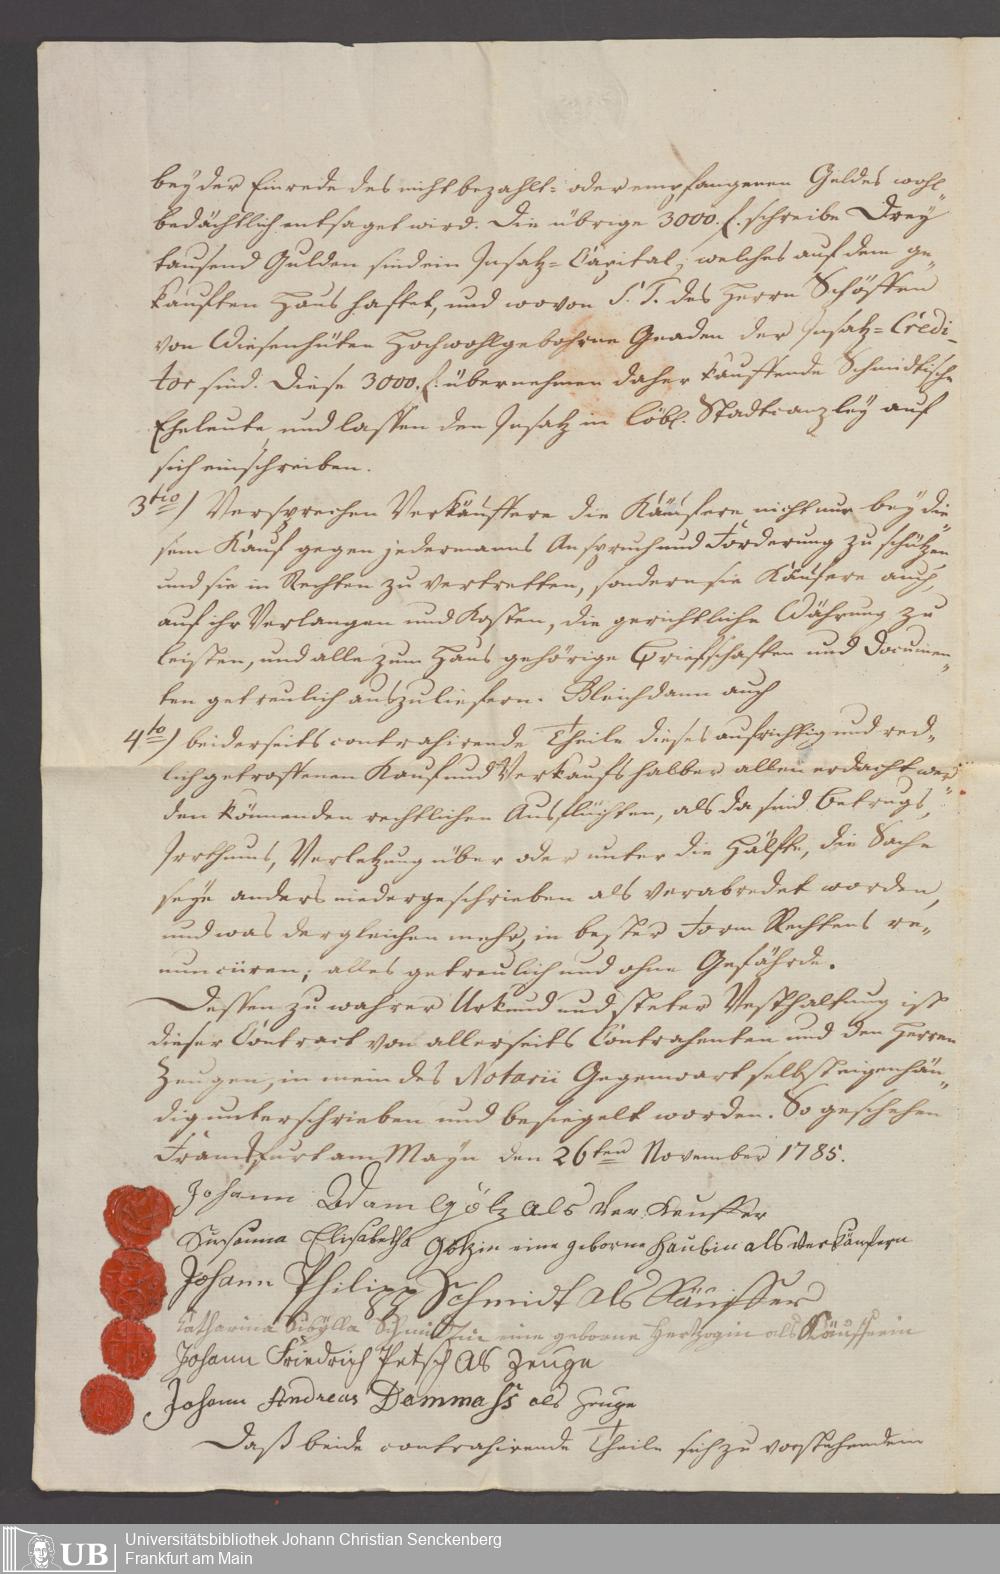 bey der Einrede des nicht bezahlt- oder empfangenen Geldes wohl„
bedächtlich entsaget wird. Die übrige 3000. f. schreibe Drey„
tausend Gulden sind ein Insatz-Capital, welches auf dem ge„
kauften Haus haftet, und wovon S. T. des Herrn Schöffen
von Wiesenhüten Hochwohlgebohrne Gnaden der Insatz-Credi-
tor sind. Diese 3000. f. übernehmen daher kauffende Schmidtische
Eheleute, und lassen den Insatz in löbl. Stadtcanzley auf
sich einschreiben.
3tio) Versprechen Verkäuffere die Käufere nicht nur bey die„
sem Kauf gegen jedermanns Anspruch und Forderung zu schützen
und sie in Rechten zu vertretten, sondern sie Käufere auch,
auf ihr Verlangen und Kosten, die gerichtliche Währung zu
leisten, und alle zum Haus gehörige Briefschafften und Documen„
ten getreulich auszuliefern. Gleichdann auch
4to) beiderseits contrahirende Theile dieses aufrichtig und red„
lich getroffenen Kauf und Verkaufs halber allen erdacht wer„
den könnenden rechtlichen Ausflüchten, als da sind Betrugs,
Irrthums, Verletzung über oder unter die Hälfte, die Sache
seye anders niedergeschrieben als verabredet worden,
und was dergleichen mehr, in bester Form Rechtens re„
nunciiren; alles getreulich und ohne Gefährde.
Dessen zu wahrer Urkund und steter Vesthaltung ist
dieser Contract von allerseits Contrahenten und den Herren
Zeugen, in mein des Notarii Gegenwart selbst eigenhän„
dig unterschrieben und besiegelt worden. So geschehen
Franckfurt am Mayn den 26ten November 1785.
Johann Adam Götz als Ver Keuffer
Susanna Elisabetha Götzin eine geborne Haubin als Verkäufern
Johann Philipp Schmidt als Käuffer
Katharina Sibylla Schmidtin eine geborne Hertzogin als Käufferin
Johann Friedrich Petsch als Zeuge
Johann Andreas Dammass als Zeuge
Daß beide contrahirende Theile sich zu vorstehendem
UB
Universitätsbibliothek Johann Christian Senckenberg
Frankfurt am Main